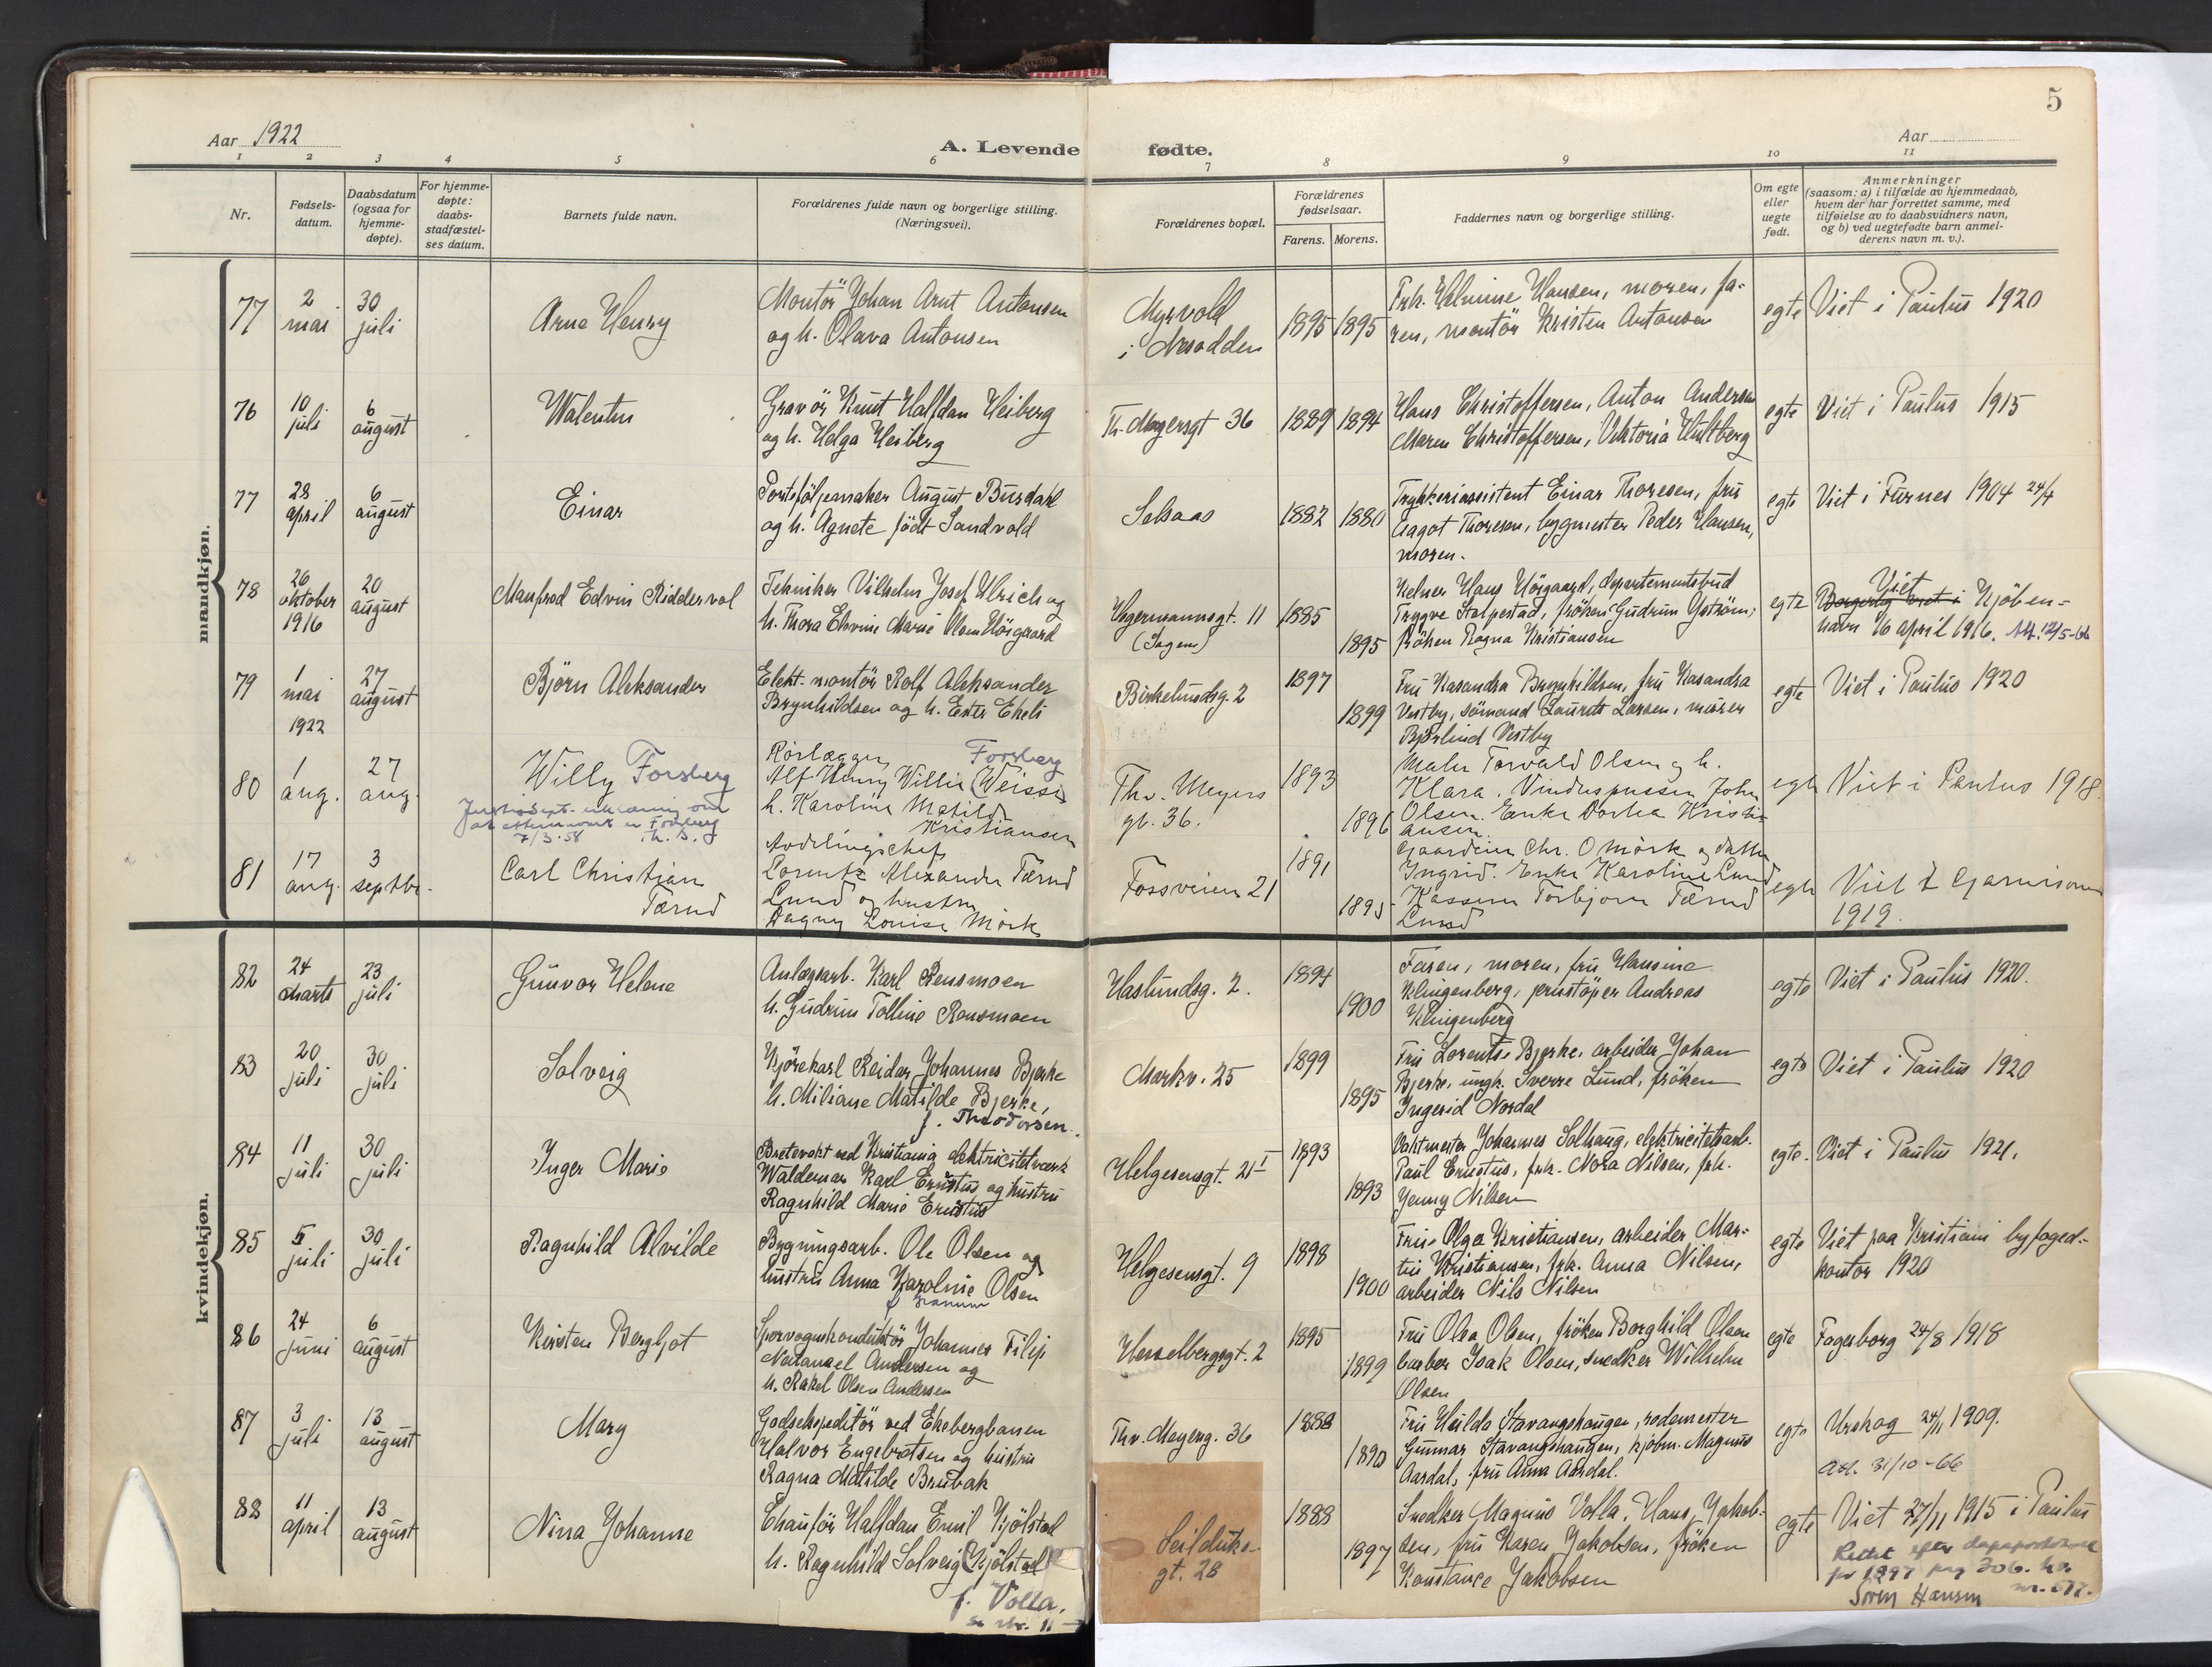 5
Aar 1922
A. Levende fødte.
Aar
1 2 3 4 5 6 7 8 9 10 11
Nr.
Fødsels-
datum.
Daabsdatum
(ogsaa for
hjemme-
døpte).
For hjemme-
døpte:
daabs-
stadfæstel-
ses datum.
Barnets fulde navn.
Forældrenes fulde navn og borgerlige stilling.
(Næringsvei).
Forældrenes bopæl.
Forældrenes
fødselsaar.
Farens. Morens.
Faddernes navn og borgerlige stilling.
Om egte
eller
uegte
født.
Anmerkninger
(saasom: a) i tilfælde av hjemmedaab,
hvem der har forrettet samme, med
tilføielse av to daabsvidners navn,
og b) ved uegtefødte barn anmel-
derens navn m. v.).
mandkjøn.
77
2
mai
30
juli
Arne Henry
Montör Johan Arnt Antonsen
og h. Olava Antonsen
Myrvold
i Nesodden
1895 1895
Frk. Helmine Hansen, moren, fa-
ren, montör Kristen Antonsen
egte
Viet i Paulus 1920
76
10
juli
6
august
Walentin
Gravör Knut Halfdan Heiberg
og h. Helga Heiberg
Th. Meyersgt 36
1889 1894
Hans Christoffersen, Anton Andersen
Maren Christoffersen, Viktoria Hultberg
egte
Viet i Paulus 1915
77
28
april
6
august
Einar
Porteföljemaker August Burdahl
og h. Agnete födt Sandvold
Selsaas
1882 1880
Trykkeriassistent Einar Thoresen, fru
Dagot Thoresen, bygmester Peder Hansen,
moren.
egte
Viet i Furnes 1904 24/4
78
26
oktober
1916
20
august
Manfred Edvin Ridderval
Tekniker Vilhelm Josef Ulrich og
h. Thora Elvine Marie Olsen Hörgaard
Hegermannsgt. 11
(Sagene)
1885
1895
Kelner Hans Hörgaard, departementsbud
Trygve Stalpestad, fröken Gudrun Yström,
fröken Ragna Kristiansen
egte
Viet
Borgerlig viet i Kjöben-
havn 16 april 1916. Att. 12/5-66
79
1
mai
1922
27
august
Björn Aleksander
Elekt. montör Rolf Aleksander
Brynhildsen og h. Ester Ekeli
Birkelundsg. 2
1897
1899
Fru Kasandra Brynhildsen, fru Kasandra
Vestby, sömand Laurits Larsen, murer
Bjerlind Vestby
egte
Viet i Paulus 1920
80
1
aug.
27
aug.
Willy Forsberg
7/3.58 Th. S.
Rørlægger Forsberg
Alf Henry Willie (Weisse)
h. Karoline Matilde
Kristiansen
Thv. Meyers
gt. 36.
1893
1896
Maler Torvald Olsen og h.
Klara. Vinduspusser John
Olsen. Enke Dorthea Kristi-
ansen.
egte
Viet i Paulus 1918.
81
17
aug.
3
septbr.
Carl Christian
Tærud
Avdelingschef
Lorentz Alexander Tærud
Lund og hustru
Dagny Louise Mörk
Fossveien 21
1891
1895
Gaardeier Chr. O Mörk og datter
Ingrid. Enke Karoline Lund
Kasserer Torbjørn Tærud
Lund
egte
Viet i Garnisonen
1919.
kvindekjøn.
82
24
Marts
23
juli
Gunvor Helene
Anlægsarb. Karl Rensmoen
h. Gudrun Telline Rensmoen
Haslundsg. 2.
1894
1900
Faren, moren, fru Hansine
Klingenberg, jernstöper Andreas
Klingenberg
egte
Viet i Paulus 1920.
83
20
juli
30
juli
Solveig
Kjörekarl Reidar Johannes Bjerke
h. Miliane Matilde Bjerke,
f. Theodorsen.
Markv. 25
1899
1895
Fru Lorentse Bjerke, arbeider Johan
Bjerke, ungk. Sverre Lund, fröken
Ingerid Nordal
egte
Viet i Paulus 1920
84
11
juli
30
juli
Inger Marie
Bretevakt ved Kristiania elektricitetsværk
Waldemar Karl Ernstus og hustru
Ragnhild Marie Ernstus
Helgesensgt. 21 I
1893
1893
Vaktmester Johannes Solhaug, elektricitetsarb.
Paul Ernstus, frk. Nora Nilsen, frk.
Jenny Nilsen
egte.
Viet i Paulus 1921.
85
5
juli
30
juli
Ragnhild Alvilde
Bygningsarb. Ole Olsen og
hustru Anna Karoline Olsen
f. Granum
Helgesensgt. 9
1898
1900
Fru Olga Kristiansen, arbeider Mar-
tin Kristiansen, frk. Anna Nilsen,
arbeider Nils Nilsen
egte
Viet paa Kristiani byfoged-
kontor 1920
86
24
juni
6
august
Kirsten Bergljot
Sporvognskonduktör Johannes Filip
Natanael Andersen og
h. Rakel Olsen Andersen
Hesselbergsgt. 2
1895
1899
Fru Olea Olsen, fröken Borghild Olsen
barber Isak Olsen, snedker Willhelm
Olsen
egte
Fagerborg 24/8 1918
87
3
juli
13
august
Mary
Godsekspeditör ved Ekebergbanen
Halvor Engebretsen og hustru
Ragna Matilde Brubak
Thv. Meyersg. 36
1888
1890
Fru Hulda Stavangshaugen, rodemester
Gunnar Stavangshaugen, kjöbm. Magnus
Aardal, fru Anna Aardal.
egte
Urskog 24/11 1909.
Att. 31/10-66
88
11
april
13
august
Nina Johanne
Chauför Halfdan Emil Kjölstad
h. Ragnhild Solveig (Kjölstad)
f. Volla.
se nr. 11
Seilduks-
gt. 28
1888
1897
Snedker Magnus Volla, Hans Jakob-
sen, fru Karen Jakobsen, fröken
Konstance Jakobsen
egte
Viet 27/11 1915 i Paulus
Rettet efter daapsprotokoll
for 1897 pag 306.
nr. 577.
Sören Hansen